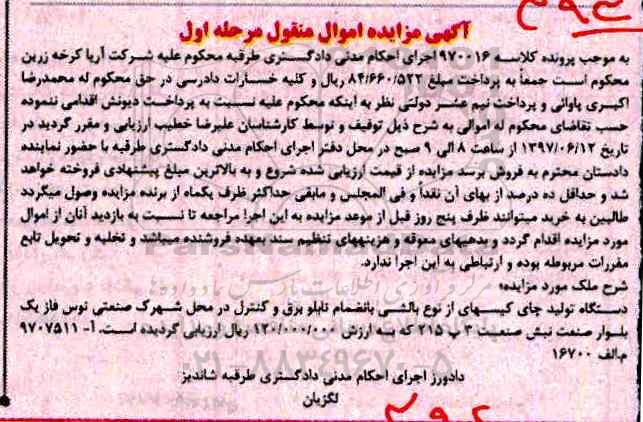 ۳۹۴
آگهی مزایده اموال منقول مرحله اول
به موجب پرونده کلاسه ۹۷۰۰۱۶ اجرای احکام مدنی دادگستری طرقبه محکوم علیه شرکت آریا کرخه زرین
محکوم است جمعاً به پرداخت مبلغ ۸۴/۶۶۰/۵۲۲ ریال و کلیه خسارات دادرسی در حق محکوم له محمدرضا
اکبری پاوائی و پرداخت نیم عشر دولتی نظر به اینکه محکوم علیه نسبت به پرداخت دیونش اقدامی ننموده
حسب تقاضای محکوم له اموالی به شرح ذیل توقیف و توسط کارشناسان علیرضا خطیب ارزیابی و مقرر گردید در
تاریخ ۱۳۹۷/۰۶/۱۲ از ساعت ۸ الی ۹ صبح در محل دفتر اجرای احکام مدنی دادگستری طرقبه با حضور نماینده
دادستان محترم به فروش برسد مزایده از قیمت ارزیابی شده شروع و به بالاترین مبلغ پیشنهادی فروخته خواهد
شد و حداقل ده درصد از بهای آن نقداً و فی المجلس و مابقی حداکثر ظرف یکماه از برنده مزایده وصول میگردد
طالبین به خرید میتوانند ظرف پنج روز قبل از موعد مزایده به این اجرا مراجعه تا نسبت به بازدید آنان از اموال
مورد مزایده اقدام گردد و بدهیهای معوقه و هزینههای تنظیم سند بعهده فروشنده میباشد و تخلیه و تحویل تابع
مقررات مربوطه بوده و ارتباطی به این اجرا ندارد.
شرح ملک مورد مزایده:
دستگاه تولید چای کیسهای از نوع بالشی بانضمام تابلو برق و کنترل در محل شهرک صنعتی توس فاز یک
بلوار صنعت نبش صنعت ۳ پ ۲۱۵ که به ارزش ۱۲۰/۰۰۰/۰۰۰ ریال ارزیابی گردیده است. آ- ۹۷۰۷۵۱۱
م.الف ۱۶۷۰۰
دادورز اجرای احکام مدنی دادگستری طرقبه شاندیز
لگزیان
۰۲۱-۸۸۳۴۹۶۷۰-۵